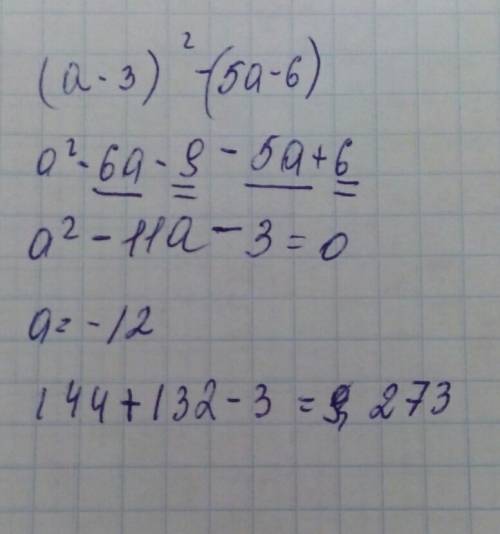 (a - 3)² - (5a - 6)
a² - 6a - 9 - 5a + 6
a² - 11a - 3 = 0
a = -12
144 + 132 - 3 = 273